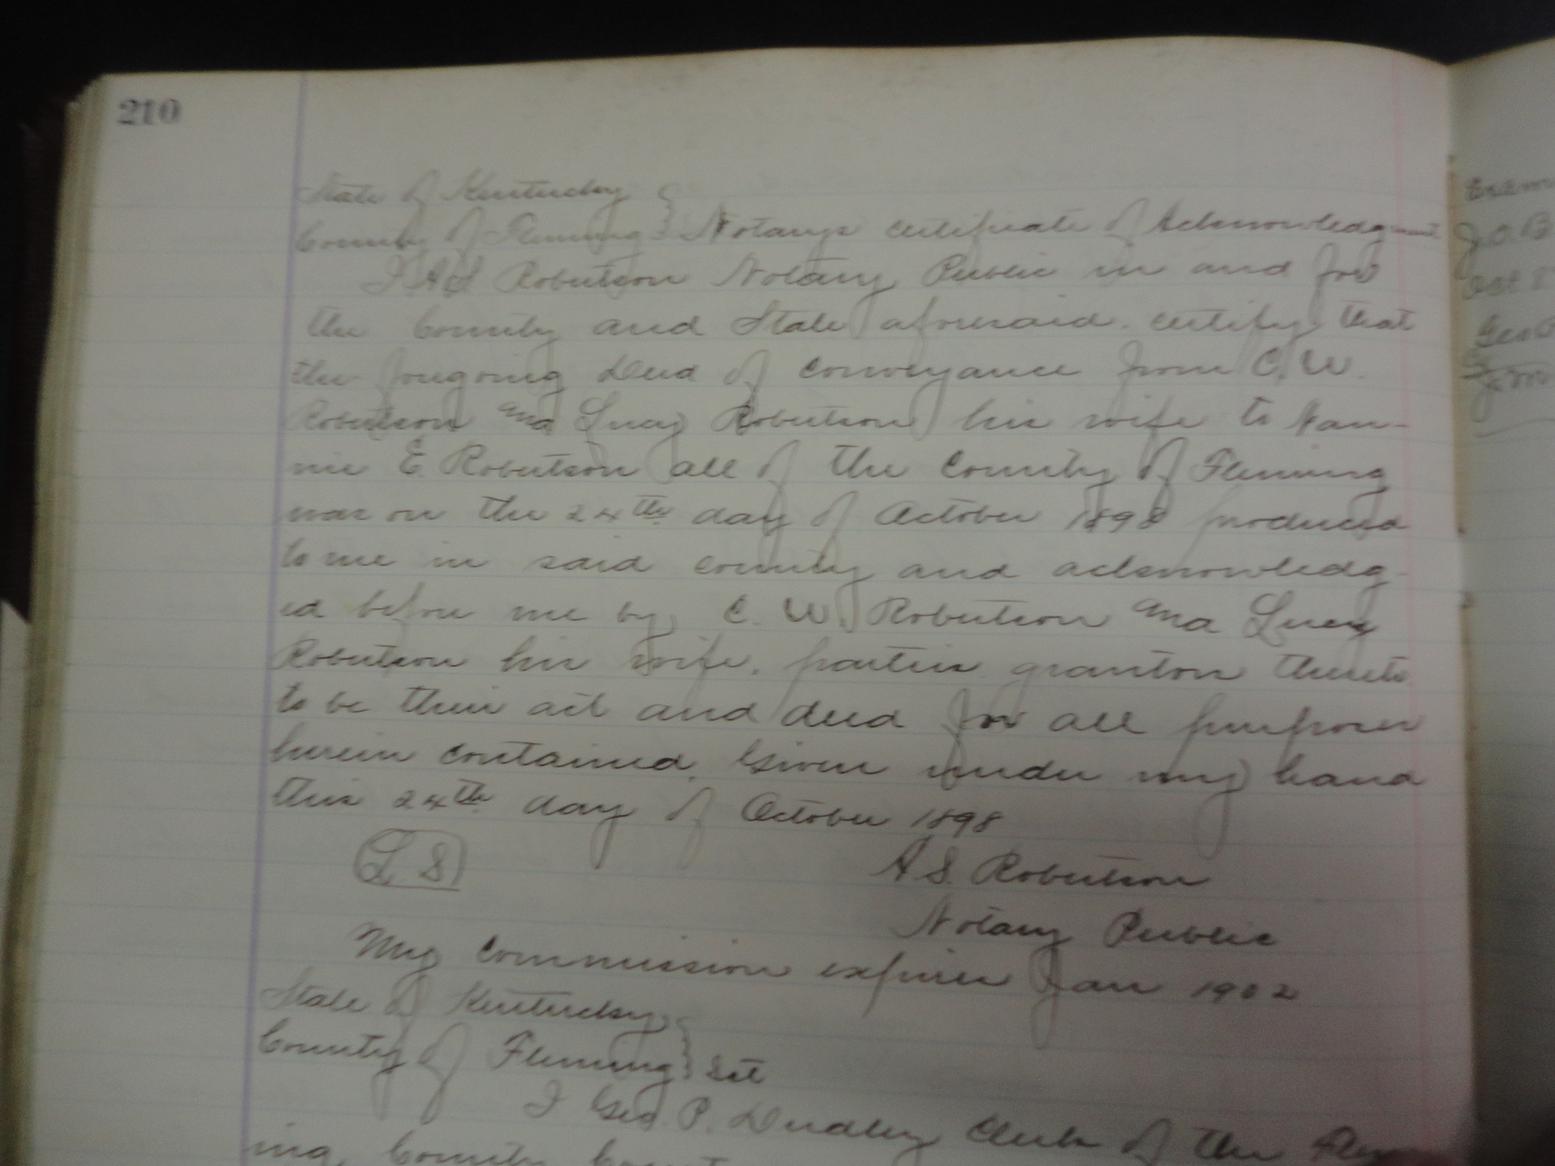 210
State of Kentucky
County of Fleming } Notarys certificate of Acknowledgment
I A S Robertson Notary Public in and for
the County and State aforesaid. certify that
the forgoing Deed of conveyance from C. W.
Robertson Lucy Robertson his wife to Nan-
nie E. Robertson all of the County of Fleming
was on the 24th day of October 1898 produced
to me in said county and acknowledg-
ed before me by C. W. Robertson Lucy
Robertson his wife. parties grantors thereto
to be their act and deed for all purposes
herein contained. Given under my hand
this 24th day of October 1898
L S
A S. Robertson
Notary Public
My Commission expires Jan 1902
State of Kentucky
County of Fleming } Sct
I Geo. P. Dudley Clerk of the
ing County
J. O. B
Oct 2